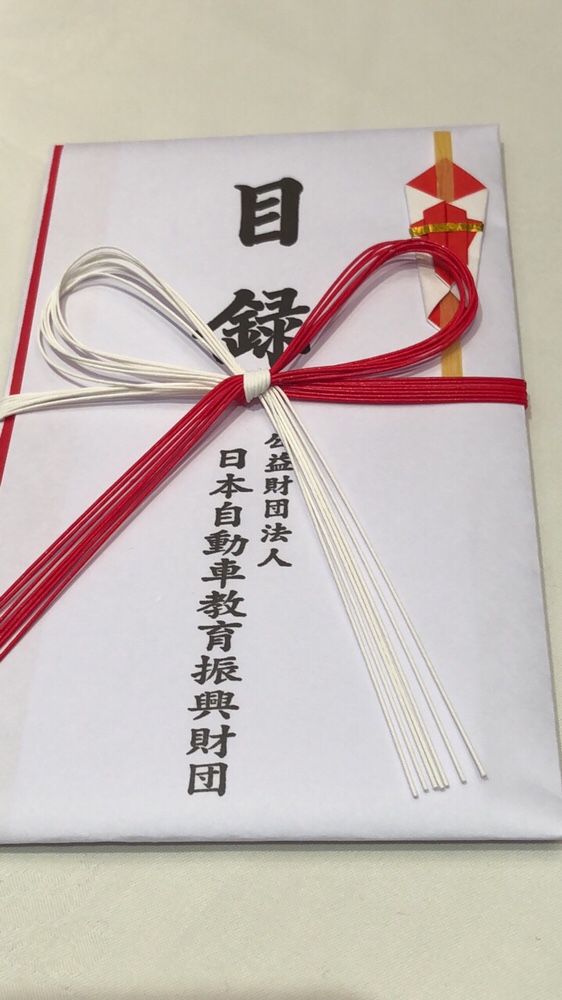 目録
公益財団法人
日本自動車教育振興財団